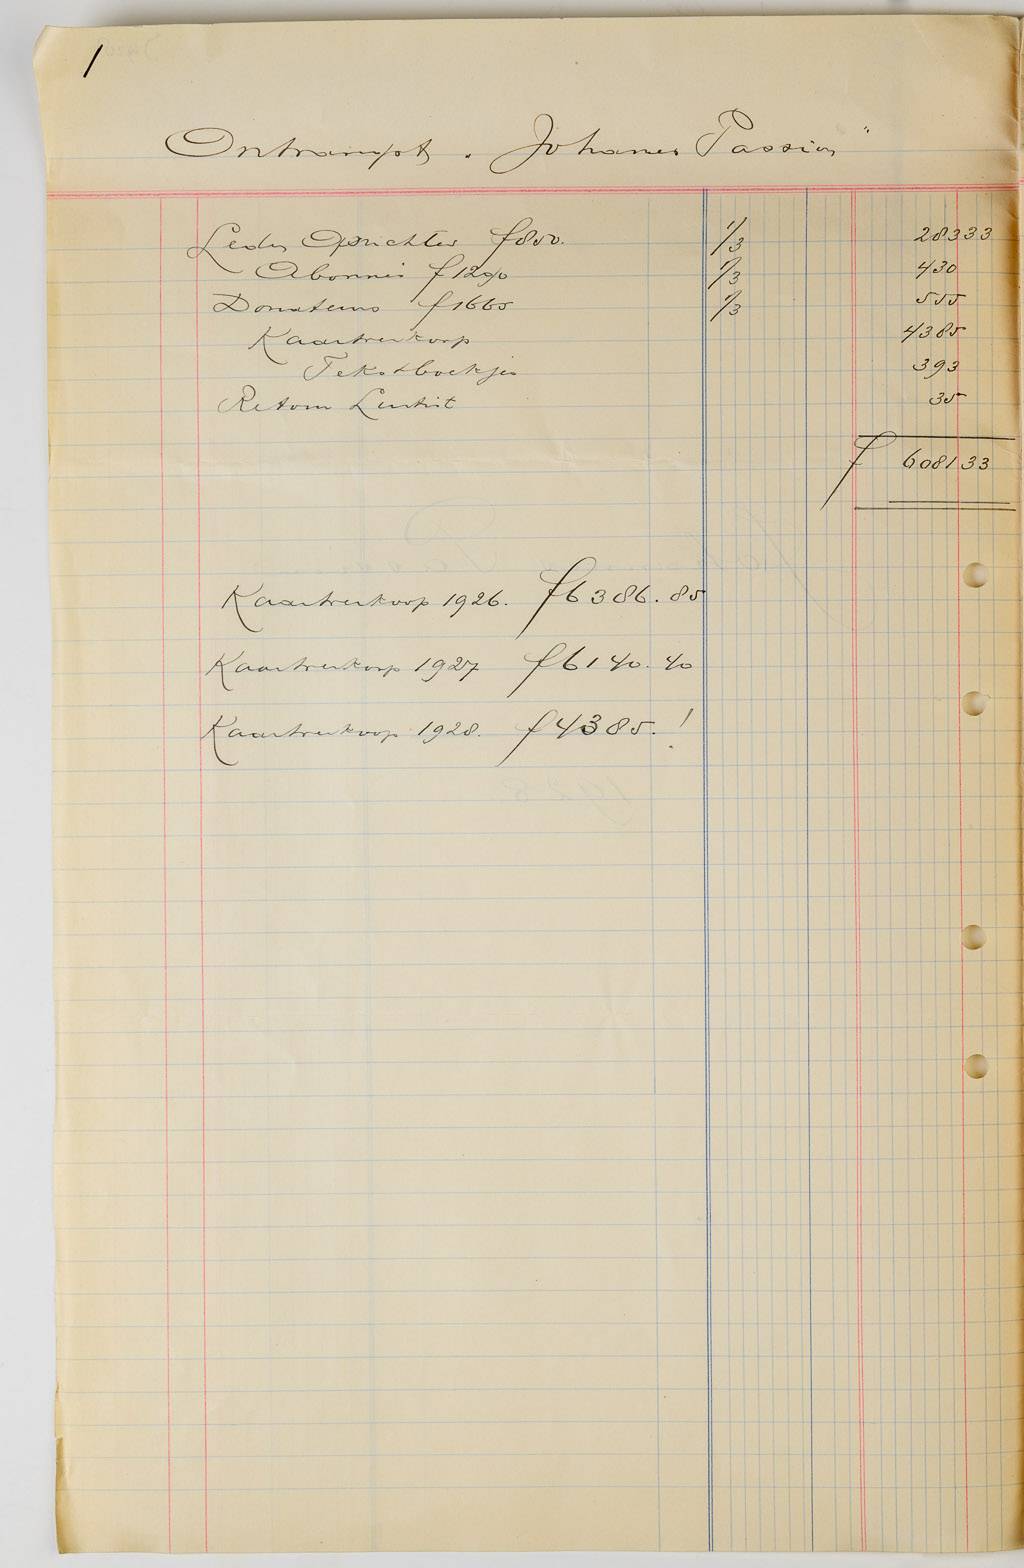 1
Ontvangst „Johannes Passion"
Leden Oprichter f 850. 1/3 283 33
Abonné's f 1290 1/3 430
Donateurs f 1665 1/3 555
Kaartverkoop 4385
Tekstboekjes 393
Retour 35
f 6081 33
Kaartverkoop 1926. f 6386.85
Kaartverkoop 1927 f 6140.40
Kaartverkoop 1928. f 4385. !